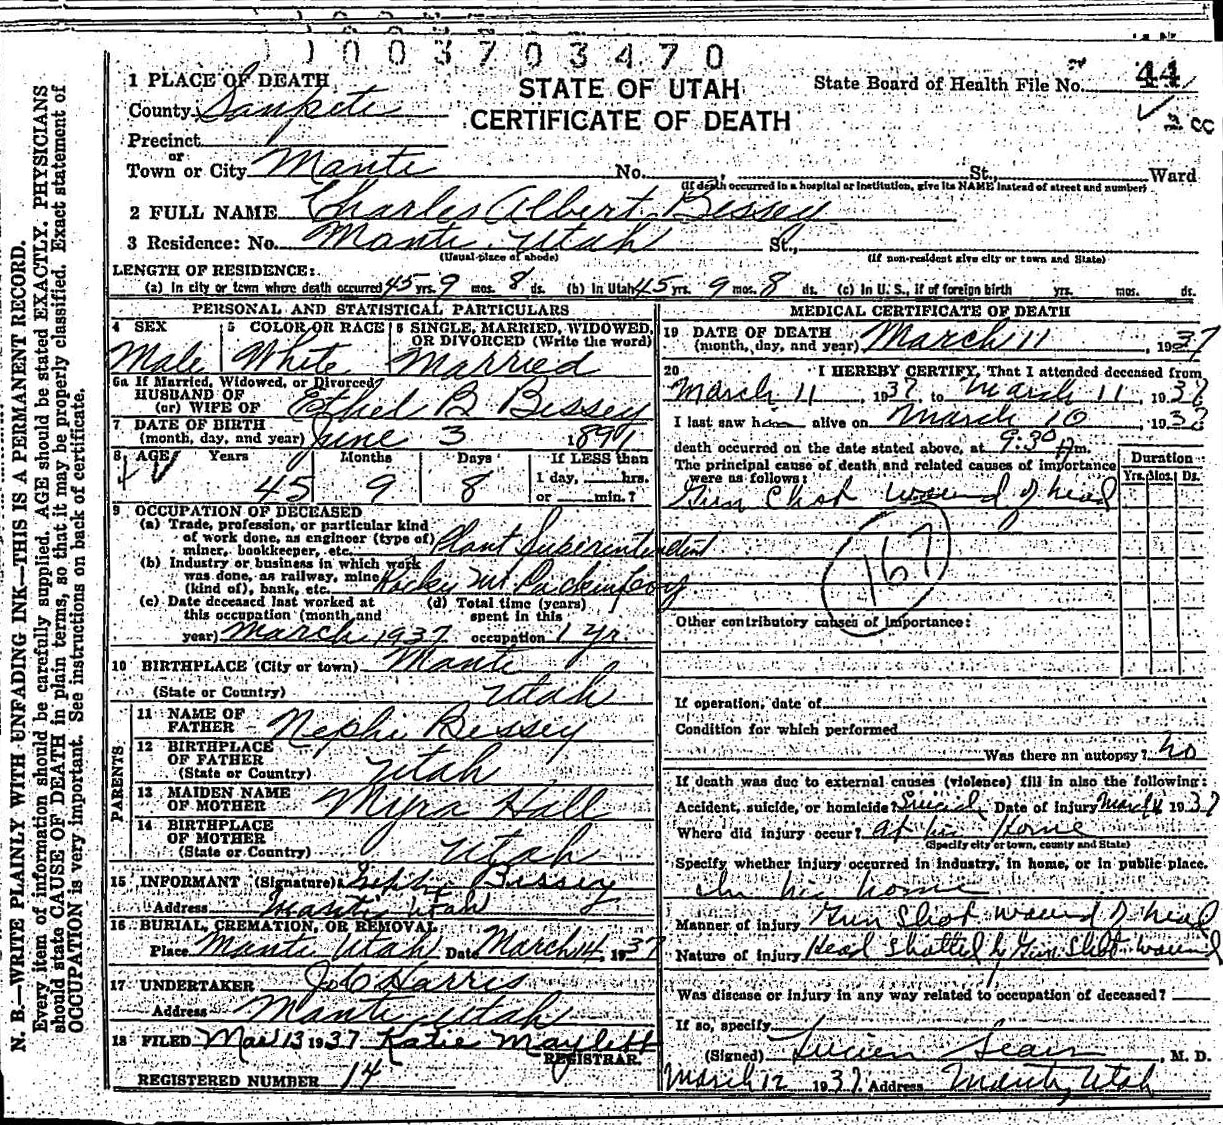 1 0 0 3 7 0 3 4 7 0
1 PLACE OF DEATH
County Sanpete
Precinct
or
Town or City Manti No. St., Ward
(If death occurred in a hospital or institution, give its NAME instead of street and number)
STATE OF UTAH
CERTIFICATE OF DEATH
State Board of Health File No. 44
2 FULL NAME Charles Albert Bessey
3 Residence: No. Manti Utah St.,
(Usual place of abode) (If non-resident give city or town and State)
LENGTH OF RESIDENCE:
(a) In city or town where death occurred 45 yrs. 9 mos. 8 ds. (b) In Utah 45 yrs. 9 mos. 8 ds. (c) In U. S., if of foreign birth yrs. mos. ds.
PERSONAL AND STATISTICAL PARTICULARS
4 SEX Male
5 COLOR OR RACE White
6 SINGLE, MARRIED, WIDOWED, OR DIVORCED (Write the word) Married
6a If Married, Widowed, or Divorced
HUSBAND OF
(or) WIFE OF Ethel B Bessey
7 DATE OF BIRTH
(month, day, and year) June 3 1891
8 AGE Years Months Days If LESS than
45 9 8 1 day, hrs.
or min.?
9 OCCUPATION OF DECEASED
(a) Trade, profession, or particular kind
of work done, as engineer (type of)
miner, bookkeeper, etc. Plant Superintendent
(b) Industry or business in which work
was done, as railway, mine
(kind of), bank, etc. Rocky Mt Packing Corp
(c) Date deceased last worked at (d) Total time (years)
this occupation (month and spent in this
year) March 1937 occupation 1 yr.
10 BIRTHPLACE (City or town) Manti
(State or Country) Utah
PARENTS
11 NAME OF
FATHER Nephi Bessey
12 BIRTHPLACE
OF FATHER
(State or Country) Utah
13 MAIDEN NAME
OF MOTHER Myra Hall
14 BIRTHPLACE
OF MOTHER
(State or Country) Utah
15 INFORMANT (Signature) Nephi Bessey
Address Manti Utah
16 BURIAL, CREMATION, OR REMOVAL
Place Manti Utah Date March 14, 1937
17 UNDERTAKER Harris
Address Manti Utah
18 FILED Mar 13 1937 Katie Maylett
REGISTRAR.
REGISTERED NUMBER 14
MEDICAL CERTIFICATE OF DEATH
19 DATE OF DEATH
(month, day, and year) March 11, 1937
20 I HEREBY CERTIFY, That I attended deceased from
March 11, 1937, to March 11, 1937
I last saw him alive on March 10, 1937
death occurred on the date stated above, at 9:30 m.
The principal cause of death and related causes of importance
were as follows:
Duration
Yrs. Mos. Ds.
Gun Shot wound of head
167
Other contributory causes of importance:
If operation, date of
Condition for which performed
Was there an autopsy? no
If death was due to external causes (violence) fill in also the following:
Accident, suicide, or homicide? Suicide Date of injury March 11 1937
Where did injury occur? at his Home
(Specify city or town, county and State)
Specify whether injury occurred in industry, in home, or in public place.
In his home
Manner of injury Gun Shot wound of head
Nature of injury Head Shatted by Gun Shot wound
Was disease or injury in any way related to occupation of deceased?
If so, specify
(Signed) Lucien Sears, M. D.
March 12 1937 Address Manti, Utah
N. B.—WRITE PLAINLY WITH UNFADING INK—THIS IS A PERMANENT RECORD.
Every item of information should be carefully supplied. AGE should be stated EXACTLY. PHYSICIANS
should state CAUSE OF DEATH in plain terms, so that it may be properly classified. Exact statement of
OCCUPATION is very important. See instructions on back of certificate.